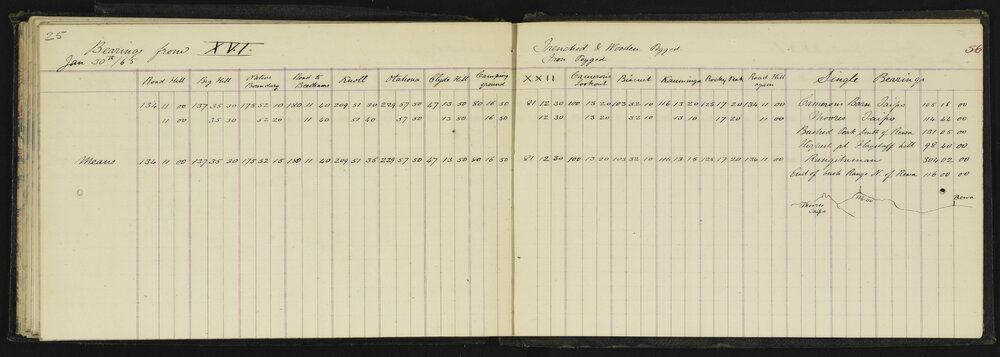 25
Bearings from XVI.
Jan 30th/65
Road Hill Big Hill Native Boundary Road to Beethams Knoll Otahona Clyde Hill Camping ground
134 11 00 137 35 30 175 52 10 180 11 40 209 51 30 229 57 50 47 13 50 80 16 50
11 00 35 30 52 20 11 40 51 40 57 50 13 50 16 50
Means 134 11 00 137 35 30 175 52 15 180 11 40 209 51 35 229 57 50 47 13 50 80 16 50
56
Trenched & Wooden Pegged
Iron Pegged
XXII Camerons Lookout Biscuit Kauminga Rocky Peak Road Hill again Single Bearings
81 12 30 100 13 20 103 32 10 116 13 20 125 17 20 134 11 00 Camerons Barn Taipo 105 16 00
12 30 13 20 32 10 13 10 17 20 11 00 Moores Taipo 114 44 00
Bushed Peak South of Rewa 131 05 00
Highest pt Flagstaff hill 98 40 00
81 12 30 100 13 20 103 32 10 116 13 15 125 17 20 134 11 00 Rangitumau 304 02 00
End of bush Range N. of Rewa 116 00 00
Moores Taipo
116.00
Rewa